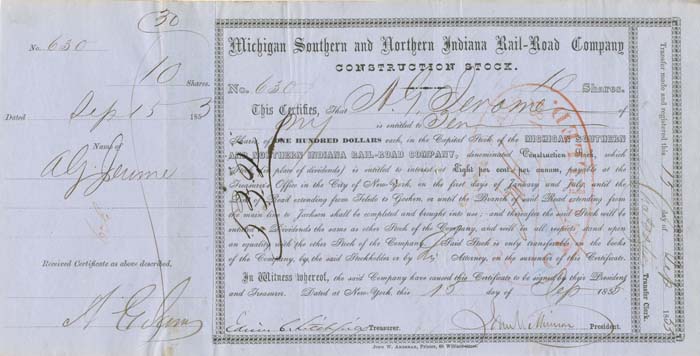 (30)
No. 630
10 Shares.
Dated Sep 15 1853
Name of
A G Jerome
Received Certificate as above described.
A G Jerome
Michigan Southern and Northern Indiana Rail-Road Company
CONSTRUCTION STOCK.
No. 630 10 Shares.
This Certifies, That A. G. Jerome of
NY is entitled to Ten
Shares of ONE HUNDRED DOLLARS each, in the Capital Stock of the MICHIGAN SOUTHERN
AND NORTHERN INDIANA RAIL-ROAD COMPANY, denominated Construction Stock, which
place of dividends) is entitled to interest at Eight per cent per annum, payable at the
Treasurer's Office in the City of New-York, in the first days of January and July, until the
Road extending from Toledo to Goshen, or until the Branch Road extending from
the main line to Jackson shall be completed and brought into use; and thereafter the said Stock will be
Dividends the same as other Stock of the Company, and will in all respects stand upon
an equality with the other Stock of the Company. Said Stock is only transferable on the books
of the Company, by the said Stockholder or by his Attorney, on the surrender of this Certificate.
In Witness whereof, the said Company have caused this Certificate to be signed by their President
and Treasurer. Dated at New-York, this 15 day of Sep 1853
Treasurer. President.
John W. Amerman, Printer, 60 William-street.
Transfer made and registered this 15 day of 1853
Transfer Clerk.